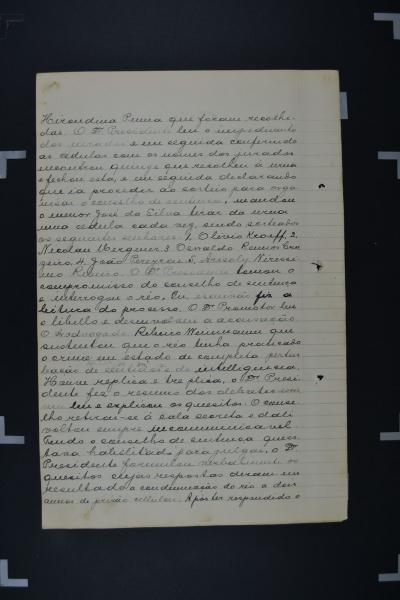 Hirondina Penna que foram recolhi-
das. O Dr. Presidente leu o impedimento
dos jurados e em seguida conferindo
as cedulas com os nomes dos jurados
encontrou quinze que recolheu á urna
e fechou esta, e em seguida declarando
que ia proceder ao sorteio para orga-
nisar o conselho de sentença, mandou
o menor José da Silva tirar da urna
uma cedula cada vez, sendo sorteados
os seguintes senhores 1. Olinto 2.
Nicolau 3 Osvaldo Ramos Cru
zeiro, 4. João 5.
O Dr. Presidente tomou o
compromisso do conselho de sentença
e interrogou o réo. Eu, escrivão fiz a
leitura do processo. O Dr. Promotor leu
o libello e desenvolveu a accusação.
O Advogado Ribeiro que
sustentou que o réo tinha praticado
o crime em estado de completa pertur
bação de sentidos e de intelligencia.
Houve replica e treplica, o Dr. Presi
dente fez o resumo dos debates
leu e explicou os quesitos. O conse
lho retirou-se á sala secreta e dali
voltou sempre incommunicavel.
Tendo o conselho de sentença
habilitado para julgar, o Dr.
Presidente formulou verbalmente os
quesitos cujas respostas deram em
resultado a condemnação do réo a dois
annos de prisão cellular. Apos ter respondido o